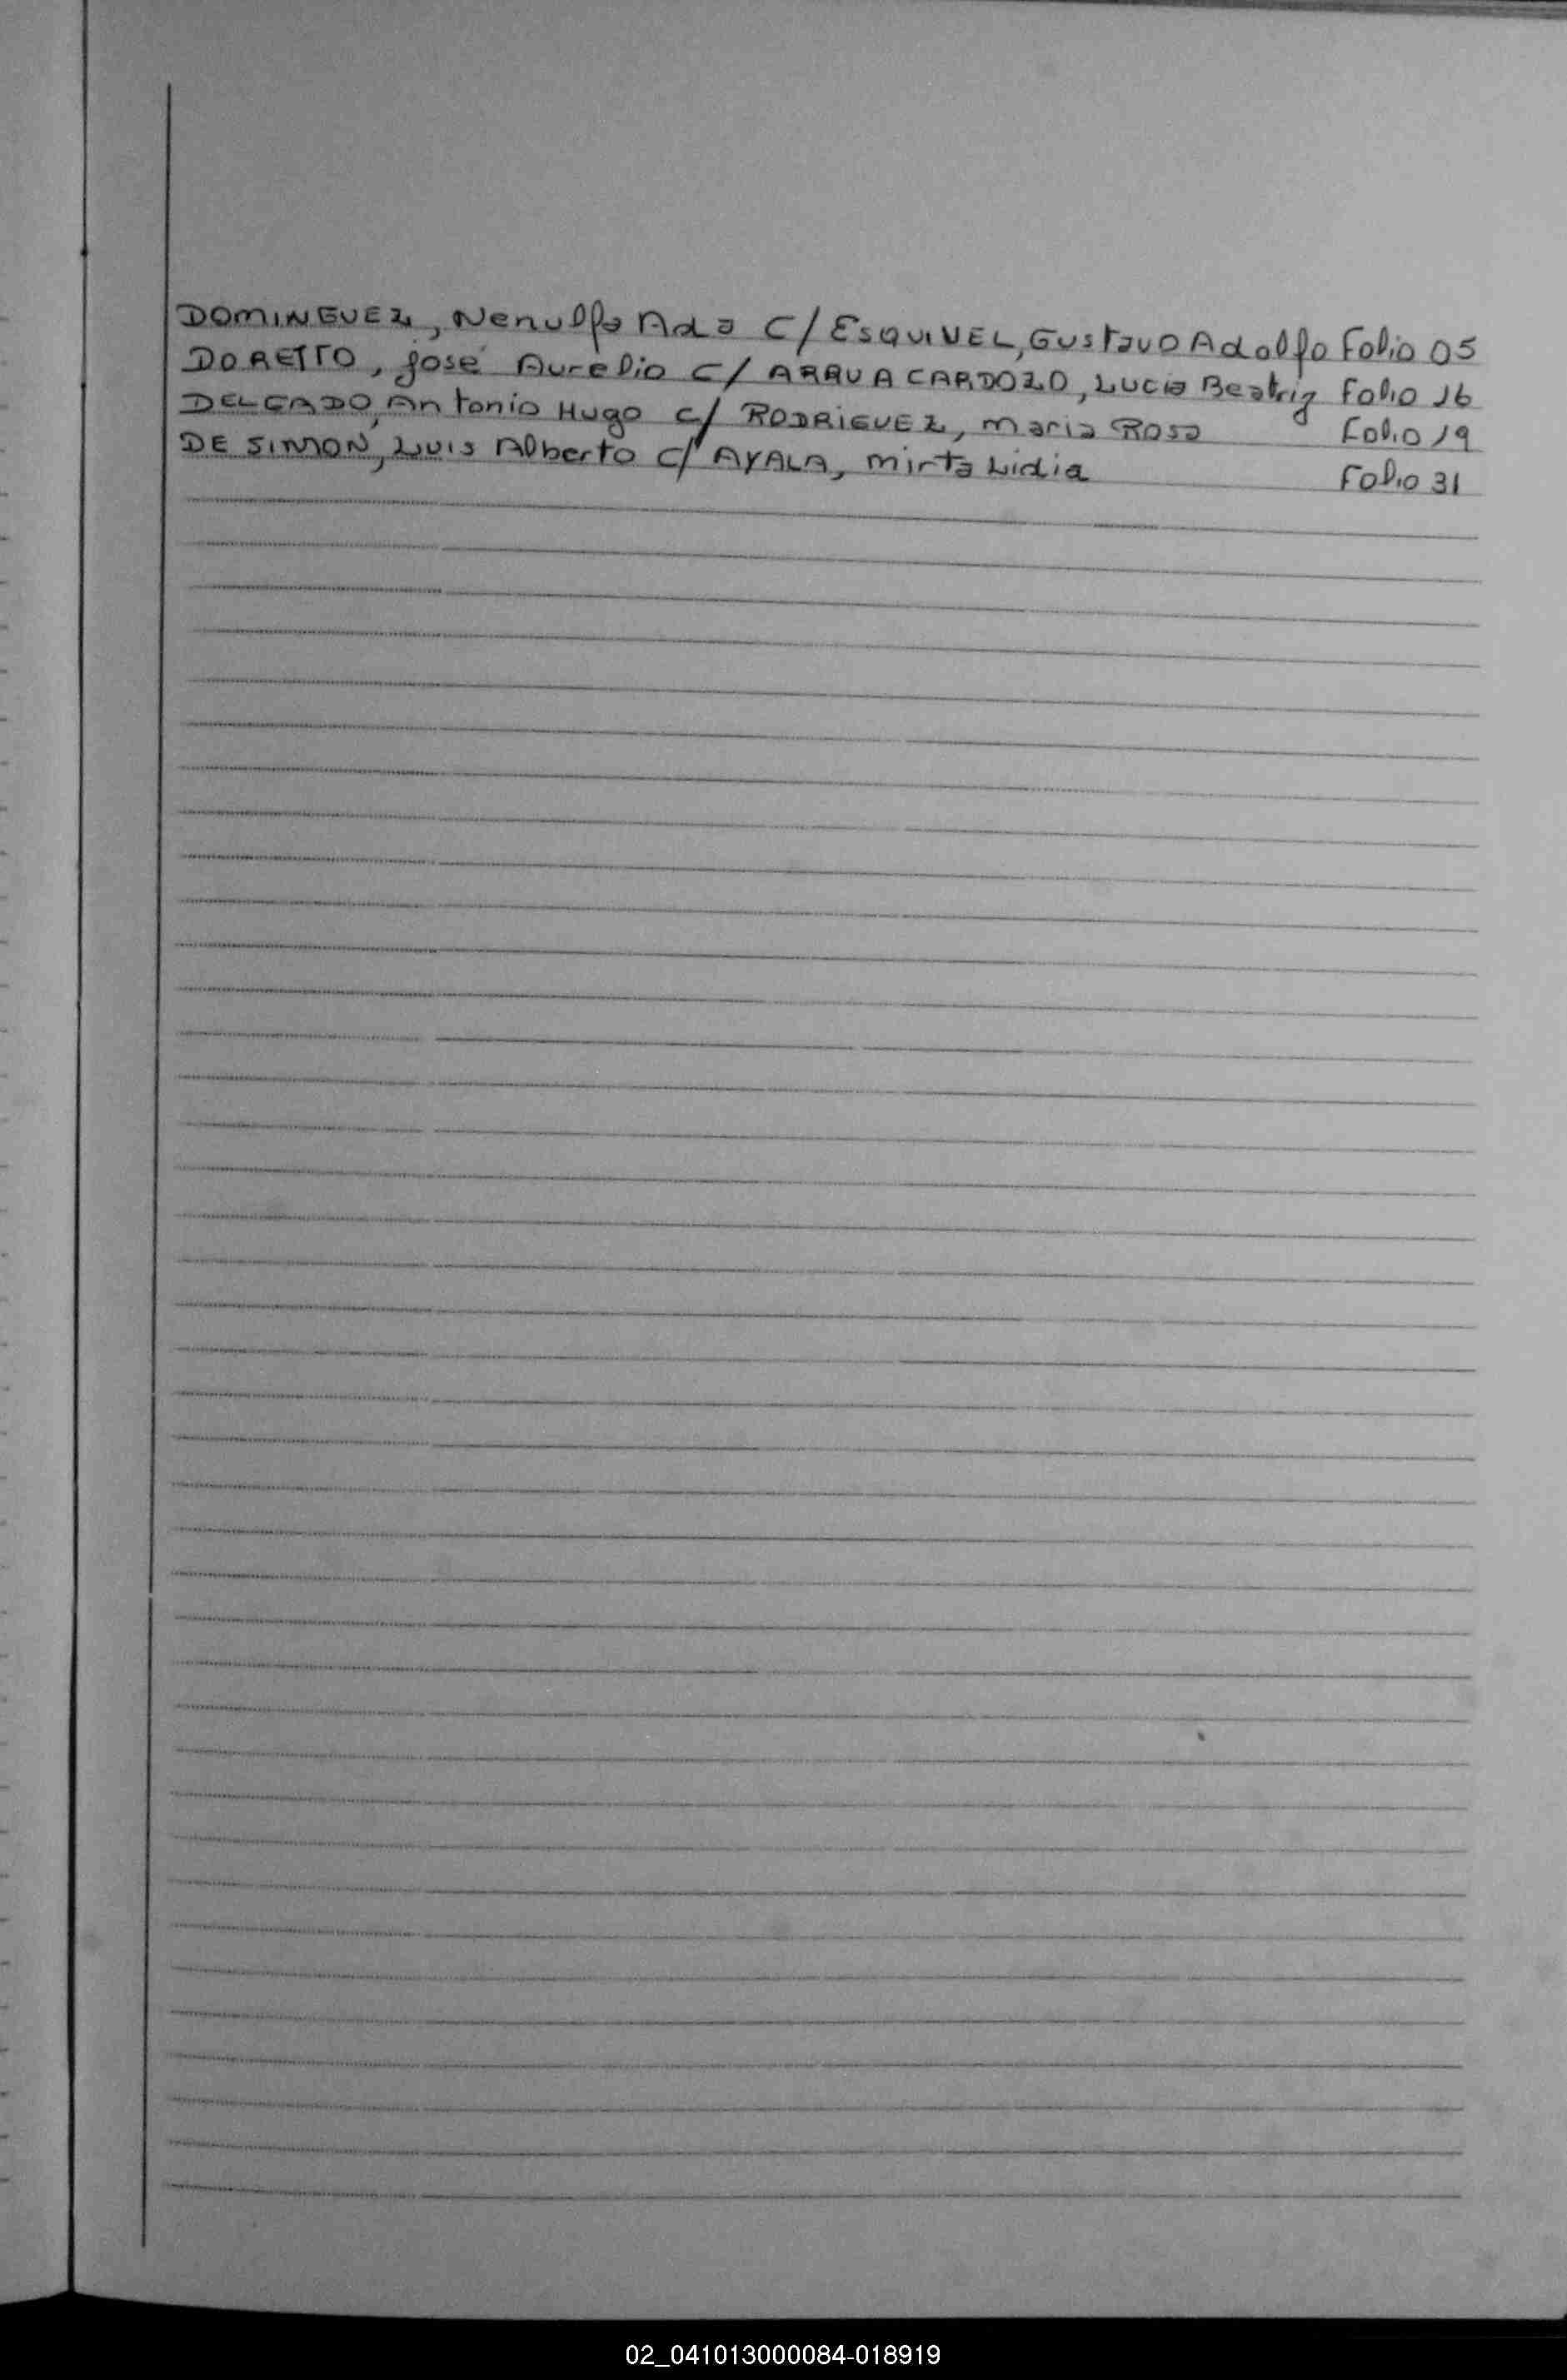 DOMINGUEZ, Nenulfa Ada C/ ESQUIVEL, Gustavo Adolfo Folio 05
DORETTO, josé Aurelio C/ ARRUA CARDOZO, Lucia Beatriz Folio 16
DELGADO, Antonio Hugo C/ RODRIGUEZ, maria Rosa Folio 19
DE SIMON, Luis Alberto C/ AYALA, mirta Lidia Folio 31
02_041013000084-018919